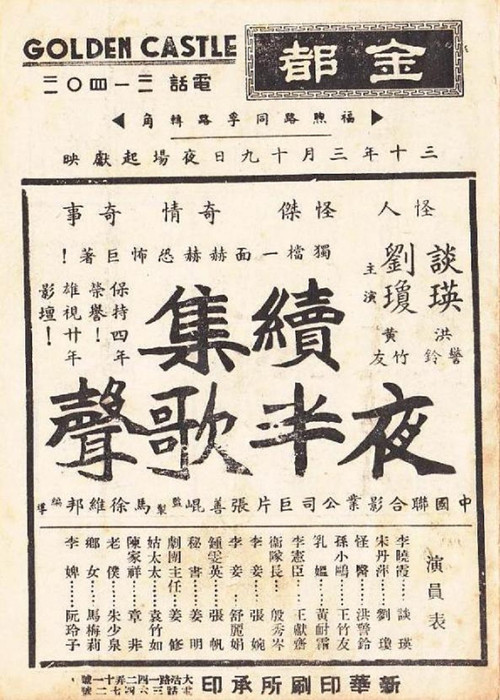 GOLDEN CASTLE
金都
電話
福煦路同孚路轉角
三十年三月十九日夜場起獻映
怪人 怪傑 奇情 奇事
談瑛 劉瓊 主演
洪警鈴 黃竹友
獨檔一面赫赫恐怖巨著！
保持四年
榮譽！
雄視廿年
影壇！
續集
夜半歌聲
中國聯合影業公司巨片 張善崐監製 馬徐維邦編導
演員表
李曉霞……談瑛
宋丹萍……劉瓊
怪醫……洪警鈴
孫小鷗……王竹友
乳媼……黃耐霜
李憲臣……王獻齋
衛隊長……殷秀岑
李妾……張婉
李妾……舒麗娟
鍾雯英……張帆
秘書……姜明
劇團主任……姜修
姑太太……袁竹如
陳家祥……章非
老僕……朱少泉
鄉女……馬梅莉
李婢……阮玲子
新華印刷所承印